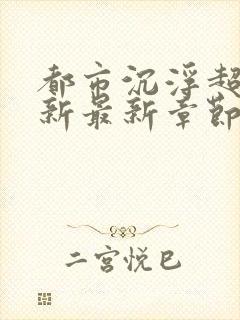 都市沉浮超
新最新章節
二宮悦巳